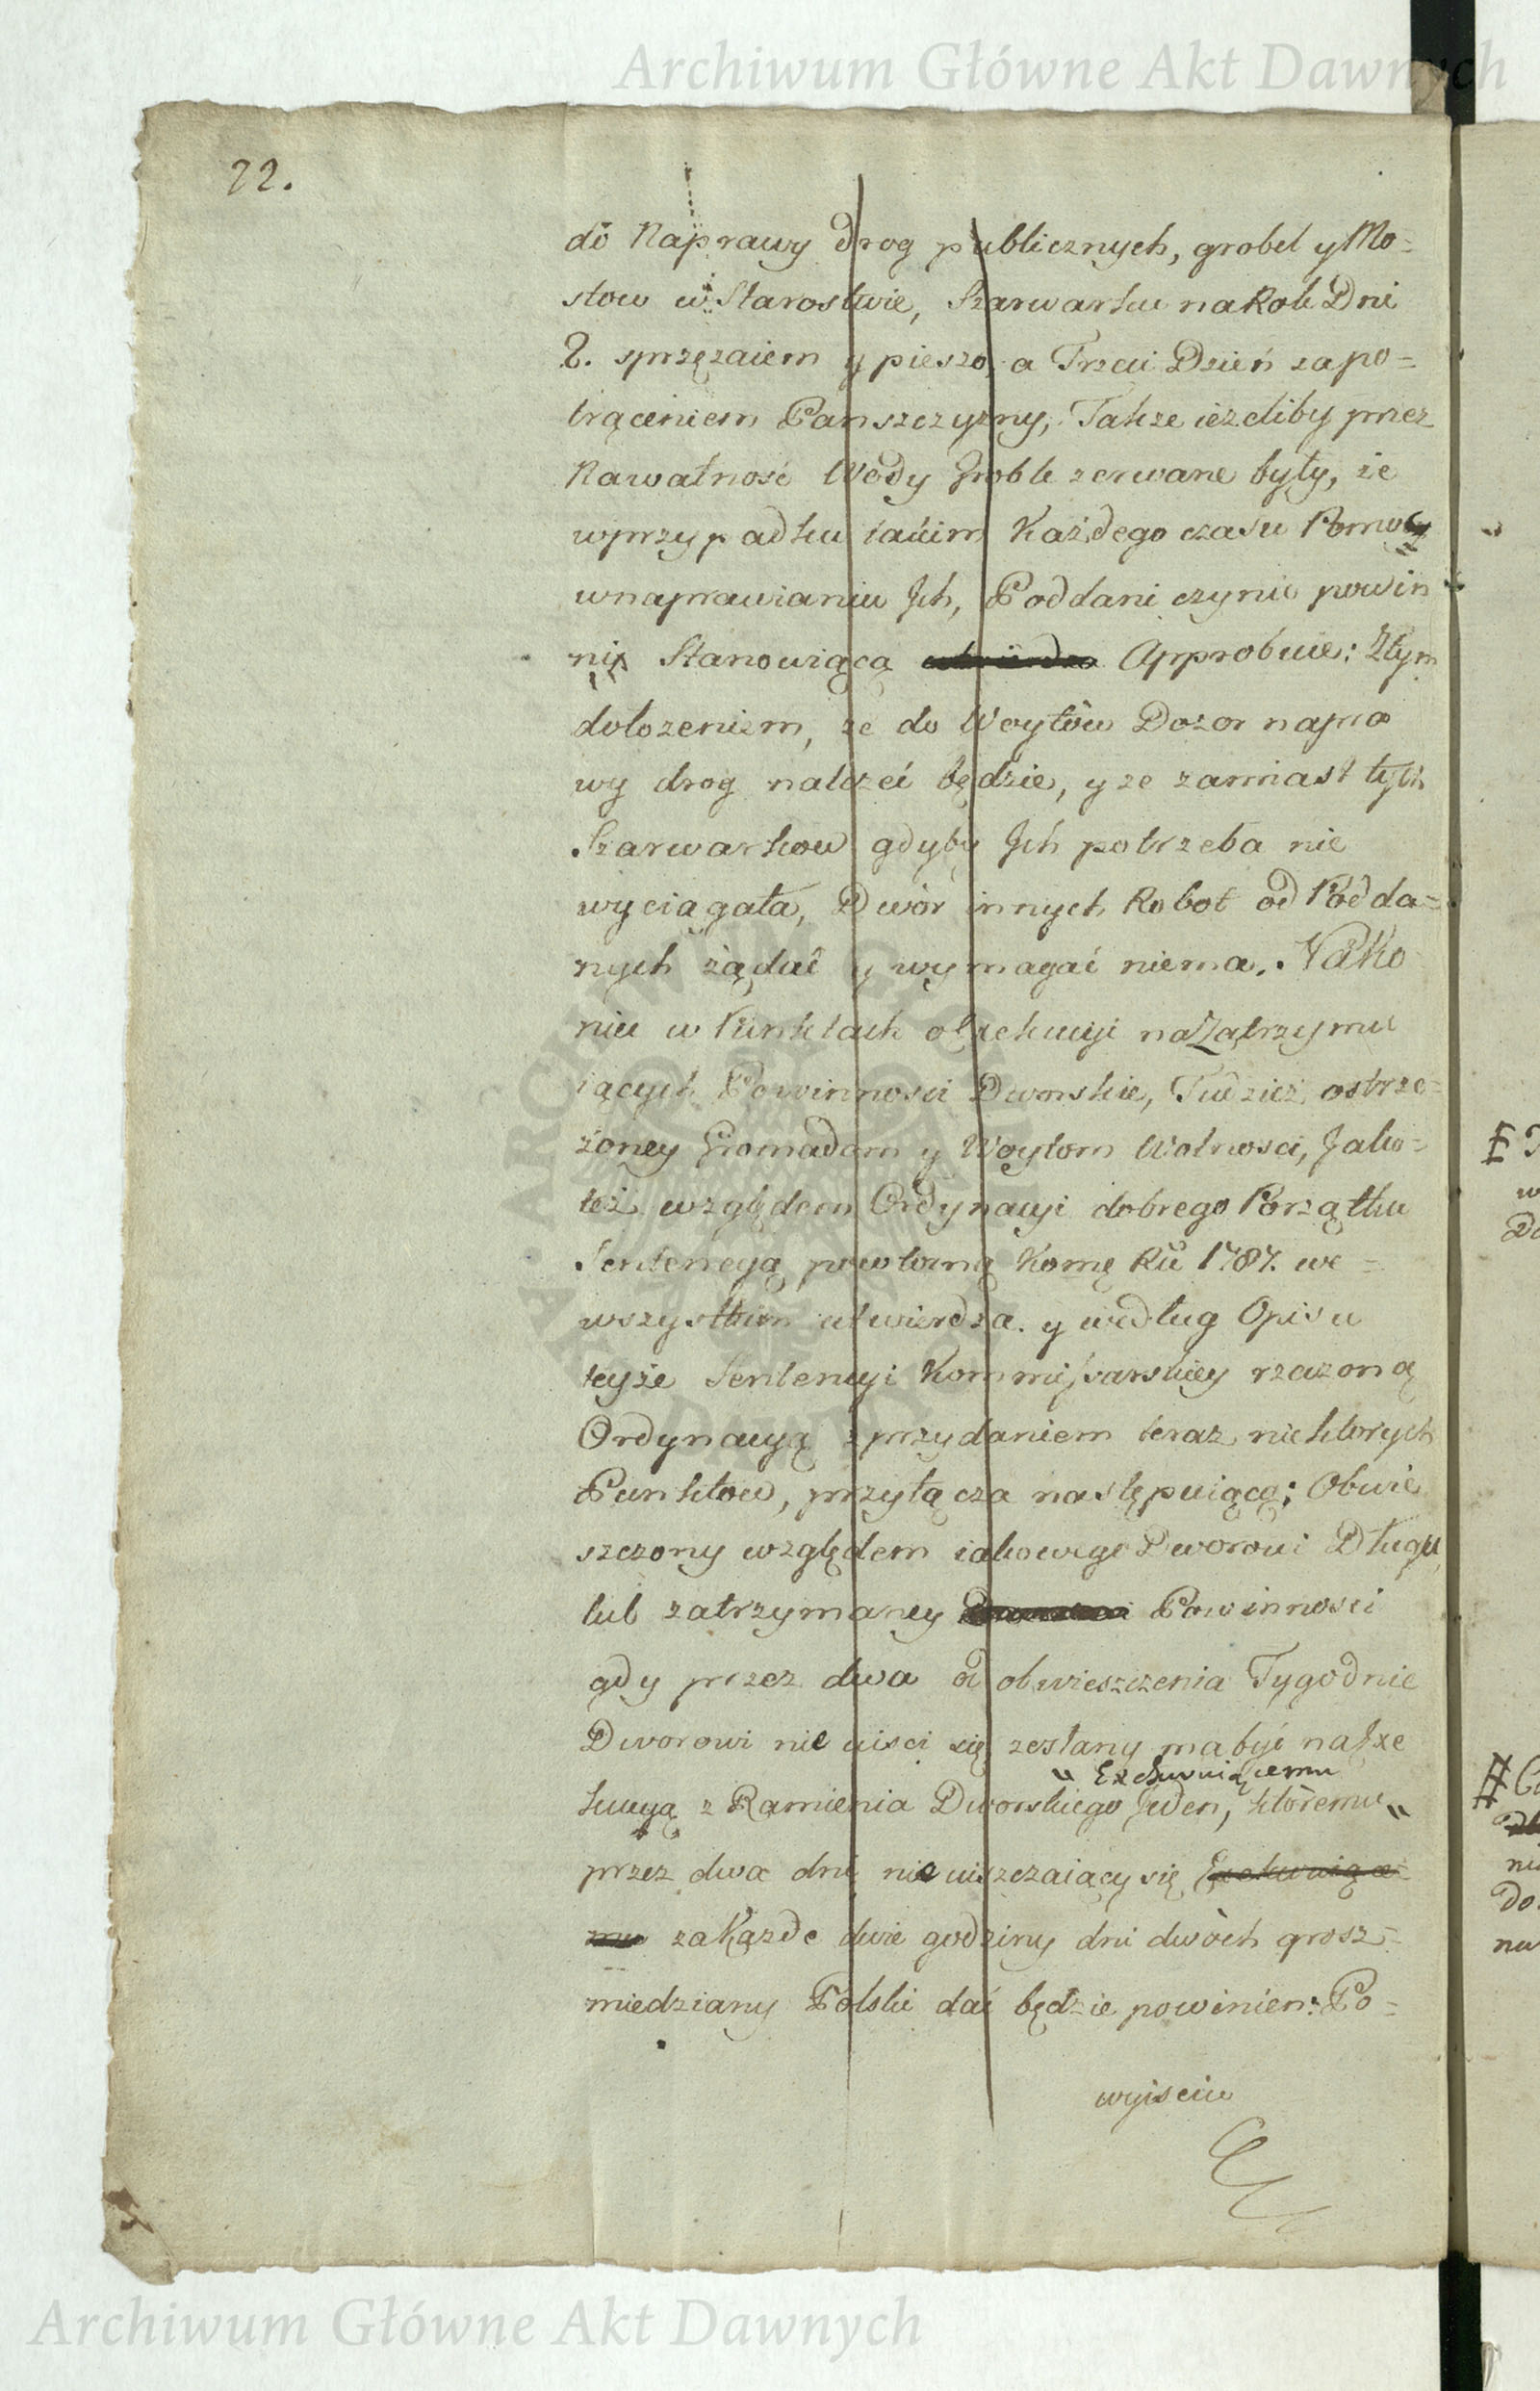 Archiwum Główne Akt Dawnych
22.
do Naprawy Drog publicznych, grobel y Mo=
stow w Starostwie, Szarwarku na Rok Dni
2. sprzężaiem y pieszo, a Trzeci Dzień za po=
trąceniem Panszczyzny, Takze iezeliby przez
Nawałność Wody Groble zerwane były, że
wprzypadku takim Każdego czasu Pomoc
wnaprawianiu Jch, Poddani czynic powin
ni Stanowiącą utwierdza Approbuie: Ztym
dołozeniem, ze do Woytów Dozor napra
wy drog nalezeć będzie, y ze zamiast tych
Szarwarkow gdyby Jch potrzeba nie
wyciągała, Dwór innych Robot od Podda=
nych żądać y wymagać niema. Nako
niec w Punktach Exekucyi na Zatrzymu
iących Powinnosci Dworskie, Tudzież ostrze=
żoney Gromadom y Woytom Wolnosci, Jako=
też względem Ordynacyi dobrego Porządku
Sentencyą powtorną Komę Rů 1787. we=
wszystkim utwierdza. y według Opisu
teyże Sentencyi Kommissarskiey rzazoną
Ordynacyą z przydaniem teraz niektorych
Punktow, przyłącza następuiącą; Obwie
szczony względem iakowego Dworowi Długu
lub zatrzymaney Powinnosci
gdy przez dwa od obwieszczenia Tygodnie
Dworowi nie uisci się, zesłany ma być na Exe
" Exekwuiącemu
kucyą z Ramienia Dworskiego Jeden, któremu "
przez dwa dni nie uiszczaiący się Exekwuiące=
mu za Każde dwie godziny dni dwóch grosz=
miedziany Polski dać będzie powinien: Po=
wyisciu
ARCHIWUM GŁÓWNE AKT DAWNYCH
Archiwum Główne Akt Dawnych